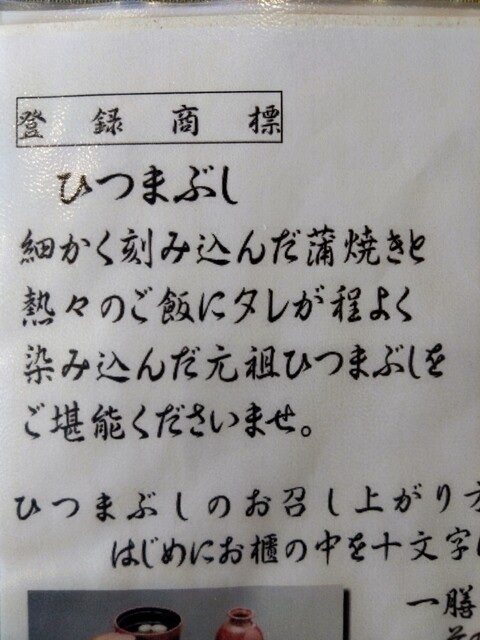 登録商標
ひつまぶし
細かく刻み込んだ蒲焼きと
熱々のご飯にタレが程よく
染み込んだ元祖ひつまぶしを
ご堪能くださいませ。
ひつまぶしのお召し上がり方
はじめにお櫃の中を十文字に
一膳